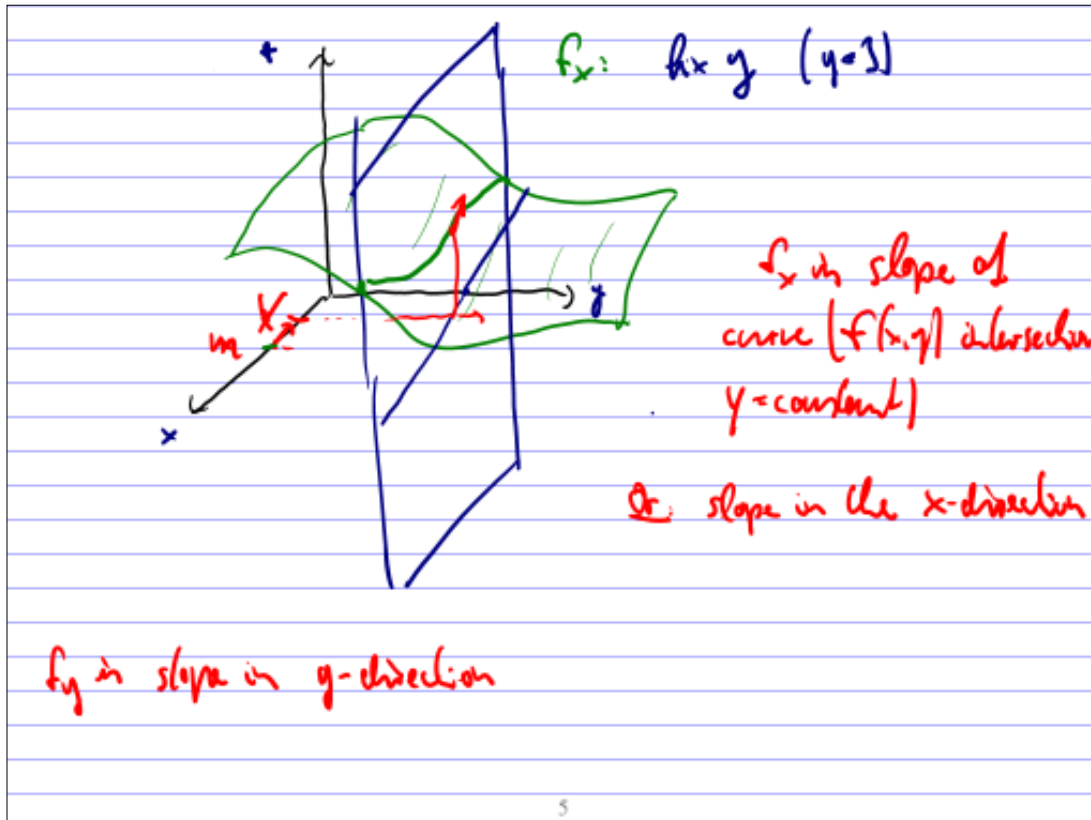 fx: fix y (y=3)
y
x
m
fx is slope of
curve (f(x,y) intersection
y=constant)
Or: slope in the x-direction
fy is slope in y-direction
5